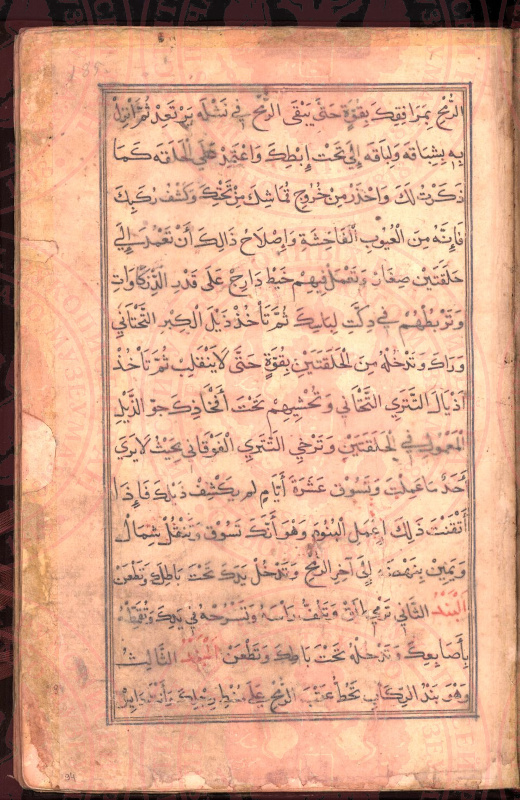 الرمح بمرافقك بقوة حتى يبقى الرمح في نشله يرتعد ثم انزل
به بشياقه ولباقه إلى تحت إبطك واعتمد على الحاقه كما
ذكرت لك واحذر من خروج قماشك من تحتك وكشف ركبك
فإنه من العيوب الفاحشة وإصلاح ذالك أن تعمد إلى
حلقتين صغار وتعمل فيهم خيط دارج على قدر الدركاوات
وتربطهم في دكت لباسك ثم تأخذ ذيل الكبر التحتاني
وراك وتدخله من الحلقتين بقوة حتى لا ينقلب ثم تأخذ
اذيال التتري التحتاني وتحشيهم تحت أفخاذك جو الذيل
المعمول في الحلقتين وترخي التتري الفوقاني بحيث لا يرى
أحد ما عملت وتسوق عشرة أيام لم يكشف ذيلك فإذا
أتقنت ذلك اعمل البنود وهو أنك تسوق وتنقل شمال
ويمين بنهضه إلى آخر الرمح وتدخل يدك تحت باطك وتطعن
البند الثاني ترمي طلق وتلف رأسه وتسرحه في يدك وتقطه
بأصابعك وتدخله تحت باطك وتطعن البند الثالث
وهو بند الركاب تحط عقب الرمح على مشط رجلك وأنت
185
94